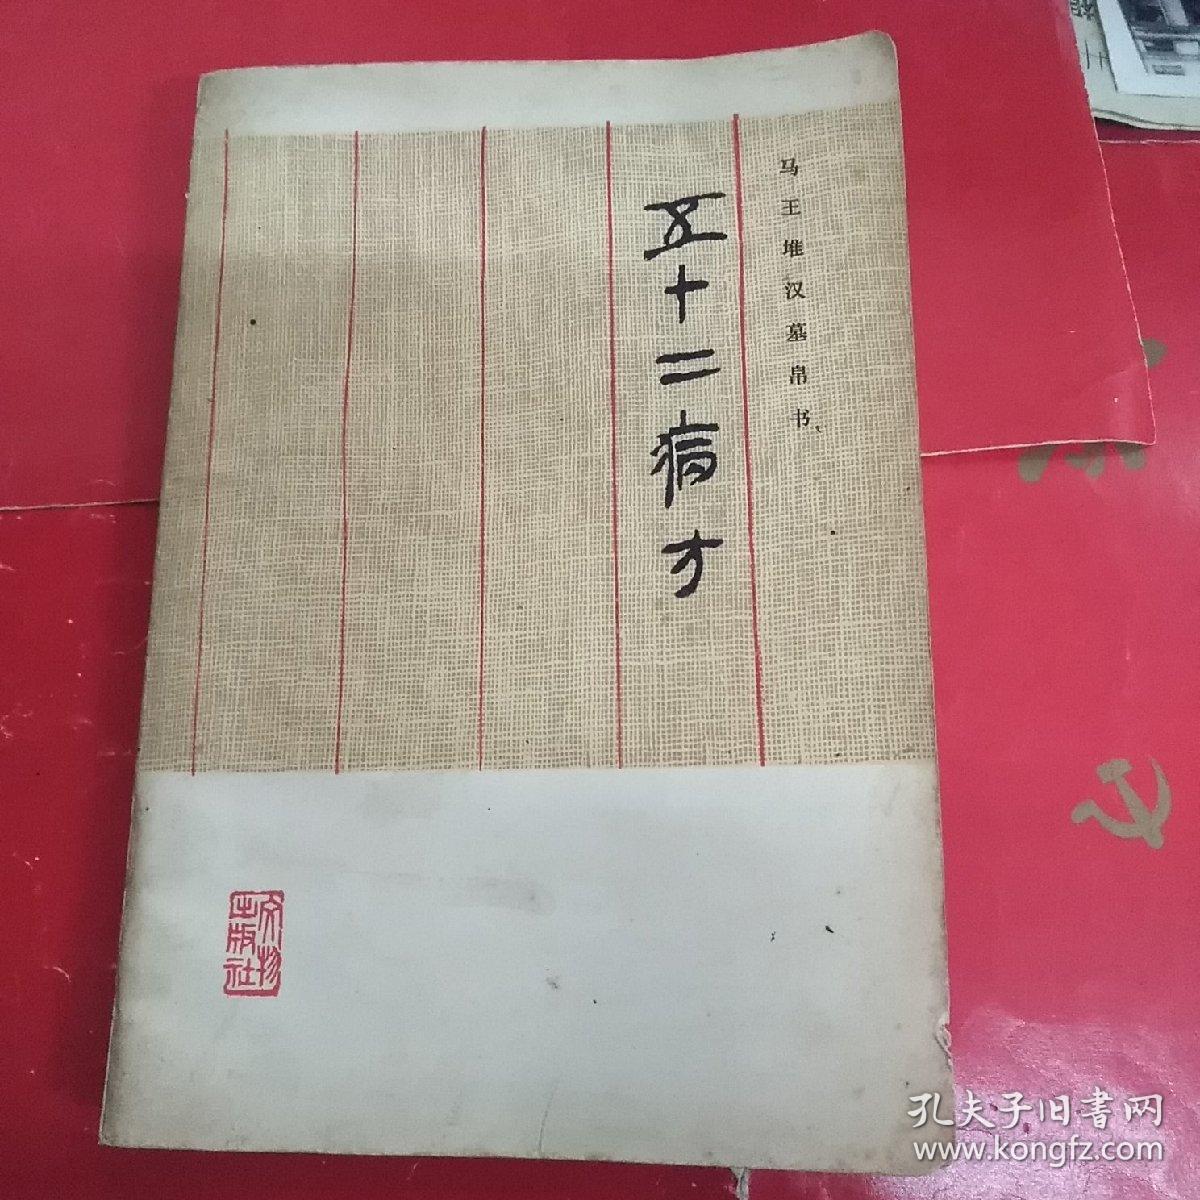 马王堆汉墓帛书
五十二病方
文物
出版社
孔夫子旧書网
www.kongfz.com